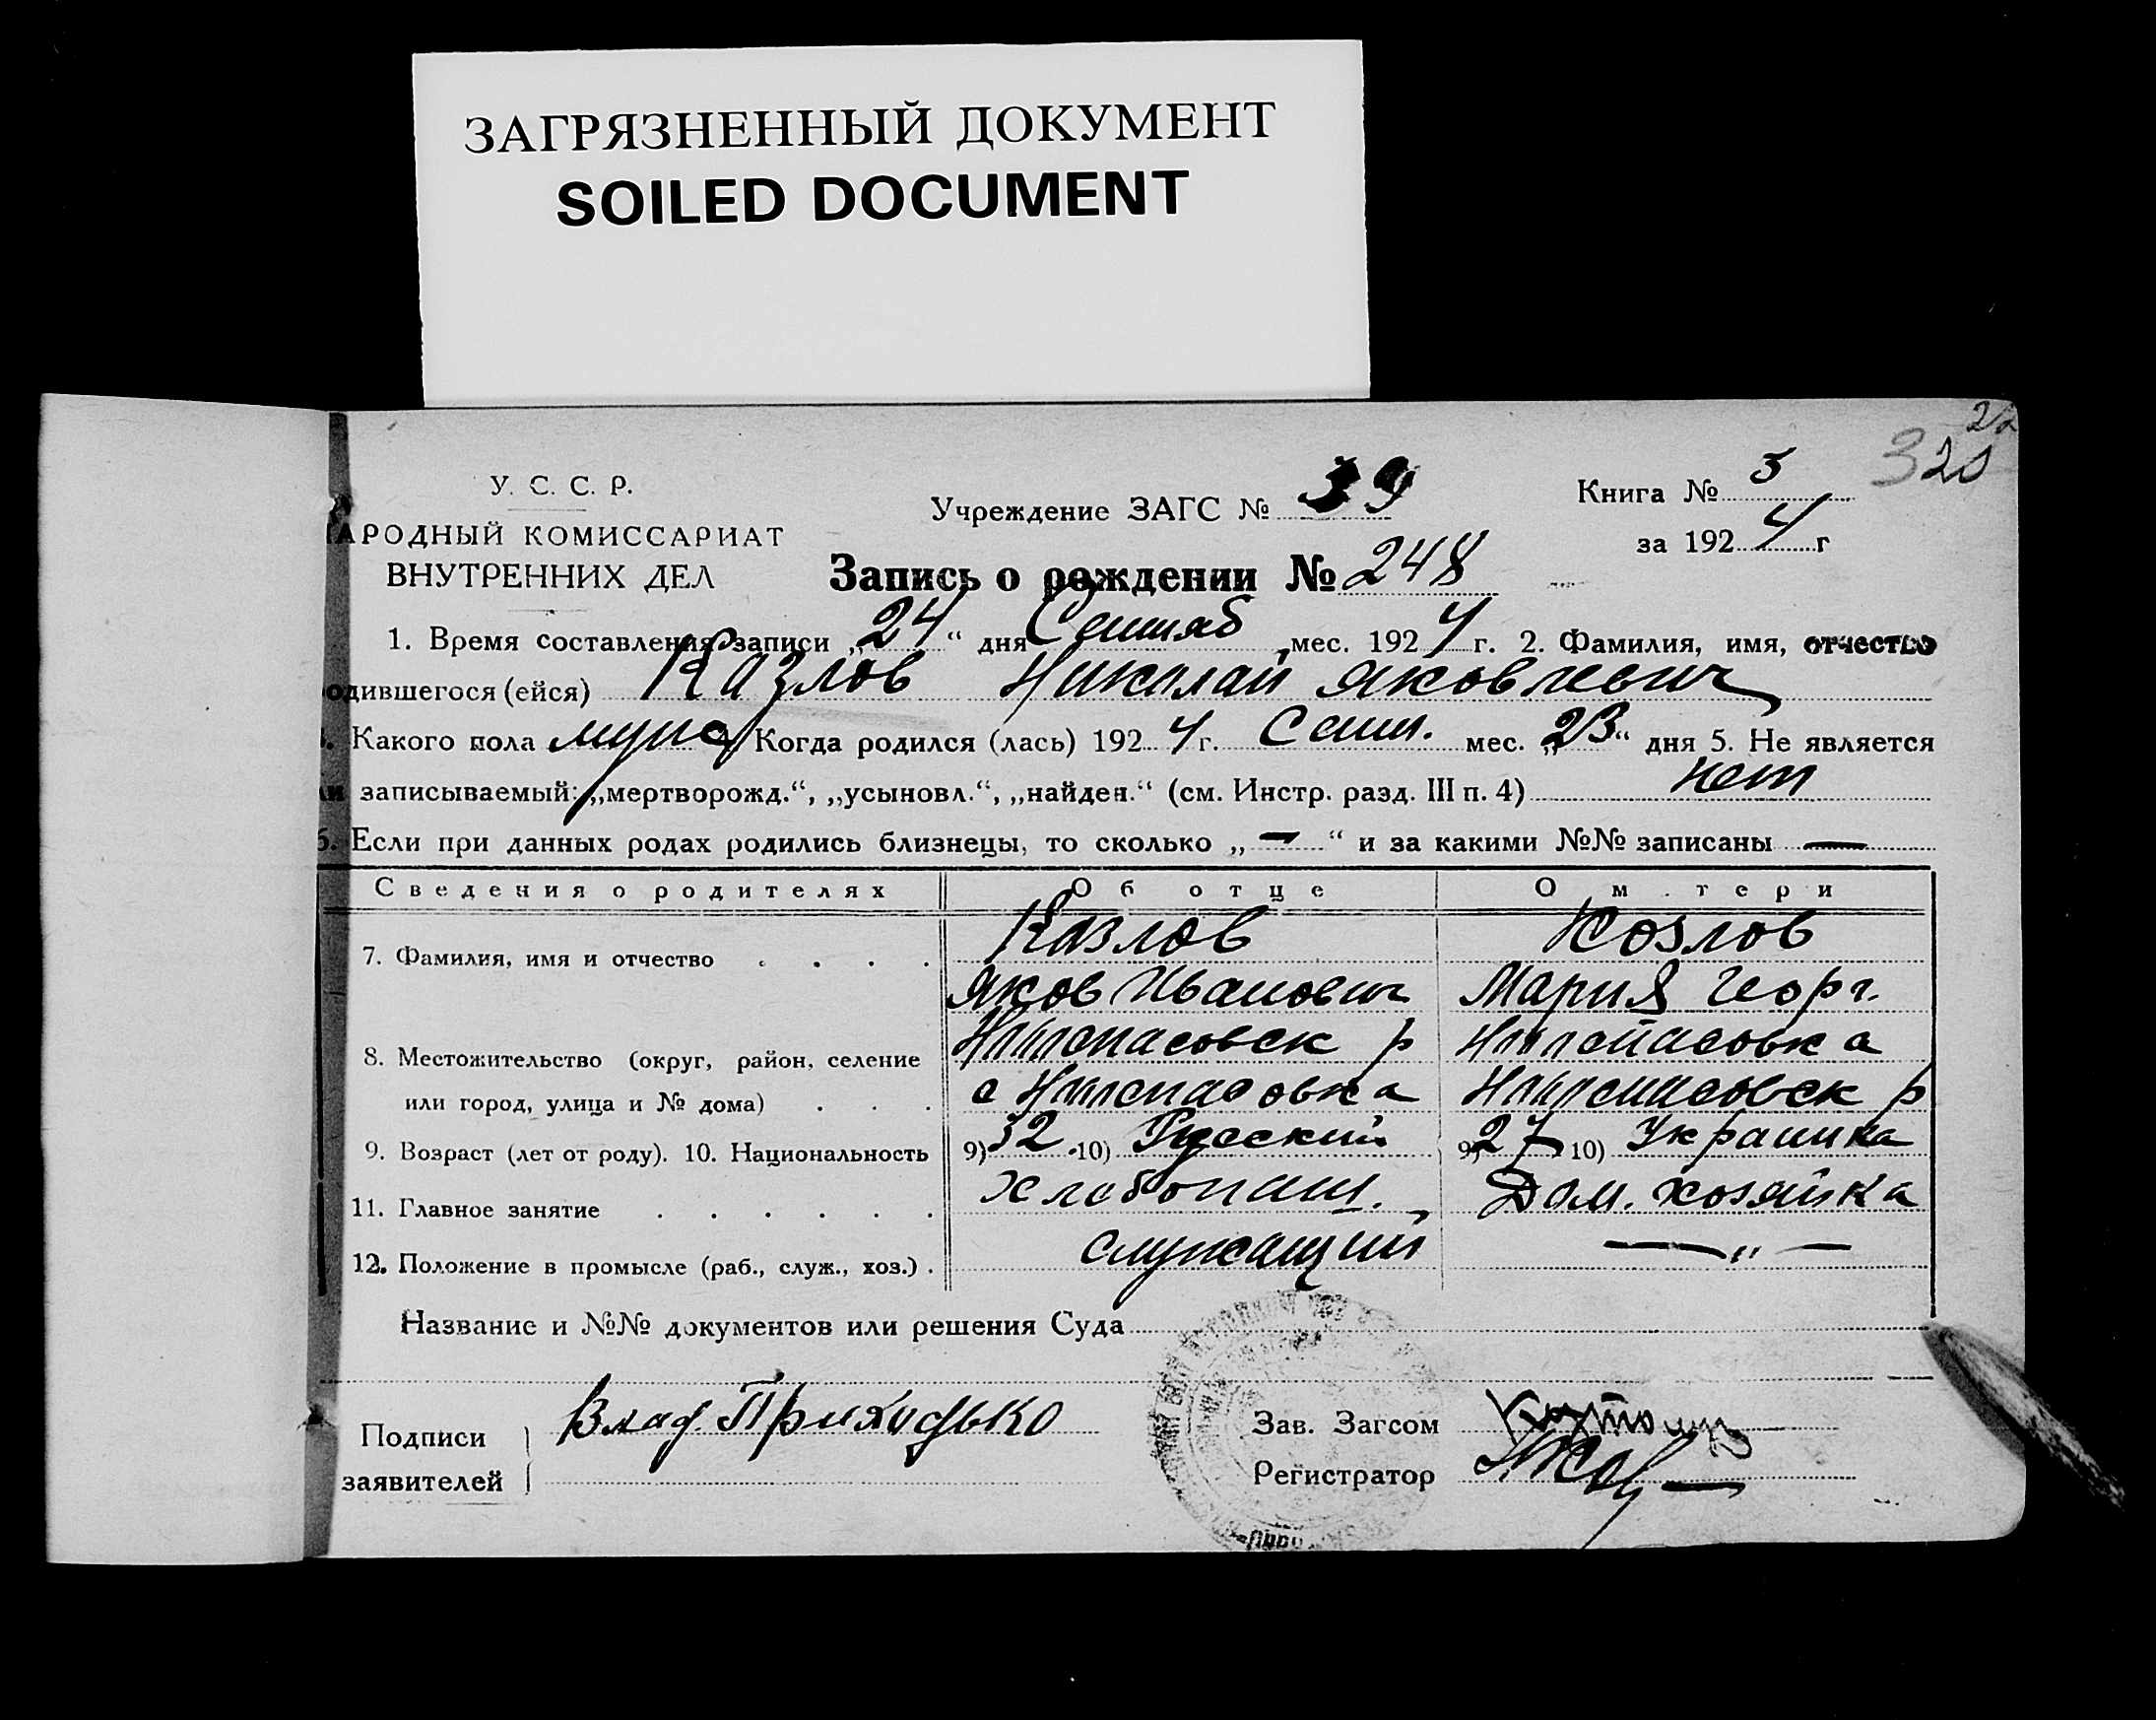 ЗАГРЯЗНЕННЫЙ ДОКУМЕНТ
SOILED DOCUMENT
320
У. С. С. Р.
НАРОДНЫЙ КОМИССАРИАТ
ВНУТРЕННИХ ДЕЛ
Учреждение ЗАГС № 39
Книга № 3
за 1924 г
Запись о рождении № 248
1. Время составления записи „24“ дня Сентяб мес. 1924 г. 2. Фамилия, имя, отчество
родившегося (ейся) Казлов Николай Яковлевич
3. Какого пола муж 4. Когда родился (лась) 1924 г. Сент. мес. „23“ дня 5. Не является
ли записываемый: „мертворожд.“, „усыновл.“, „найден.“ (см. Инстр. разд. III п. 4) нет
6. Если при данных родах родились близнецы, то сколько „ — “ и за какими №№ записаны —
Сведения о родителях Об отце О м тери
7. Фамилия, имя и отчество . . . . Казлов Козлов
Яков Иванович Мария Георг.
8. Местожительство (округ, район, селение р
или город, улица и № дома) . . . с р
9. Возраст (лет от роду). 10. Национальность 9) 32 10) Русский 9) 27 10) Украинка
11. Главное занятие . . . . . . Хлебопаш. Дом. хозяйка
12. Положение в промысле (раб., служ., хоз.) . служащий — „ —
Название и №№ документов или решения Суда
Подписи
заявителей
Влад. Приходько
Зав. Загсом
Регистратор